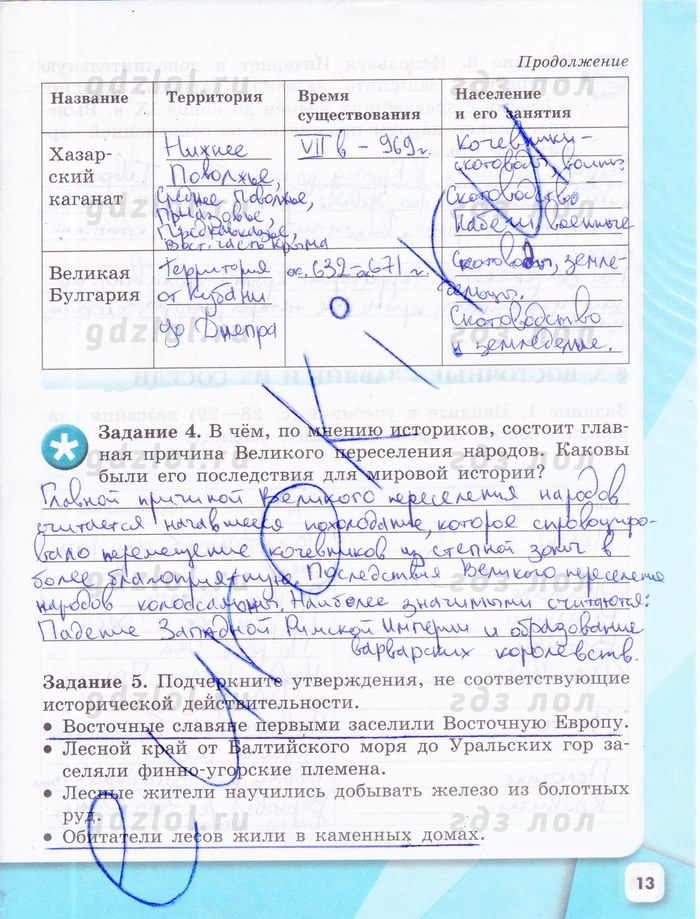 Продолжение
Название Территория Время существования Население и его занятия
Хазар-
ский
каганат
Нижнее
Поволжье,
Среднее Поволжье,
Приазовье,
Предкавказье,
Вост. часть Крыма
VII в - 969 г.
Кочевники-
скотоводы, воины.
Скотоводство
Набеги военные
Великая
Булгария
территория
от Кубани
до Днепра
ок. 632-ок 671 г.
Скотоводы, земле-
дельцы.
Скотоводство
и земледелие.
Задание 4. В чём, по мнению историков, состоит глав-
ная причина Великого переселения народов. Каковы
были его последствия для мировой истории?
Главной причиной Великого переселения народов
считается начавшееся похолодание, которое спровоциро-
вало перемещение кочевников из степной зоны в
более благоприятную. Последствия Великого переселения
народов колоссальны. Наиболее значимыми считаются:
Падение Западной Римской Империи и образование
варварских королевств.
Задание 5. Подчеркните утверждения, не соответствующие
исторической действительности.
• Восточные славяне первыми заселили Восточную Европу.
• Лесной край от Балтийского моря до Уральских гор за-
селяли финно-угорские племена.
• Лесные жители научились добывать железо из болотных
руд.
• Обитатели лесов жили в каменных домах.
13
gdzlol.ru
гдз лол